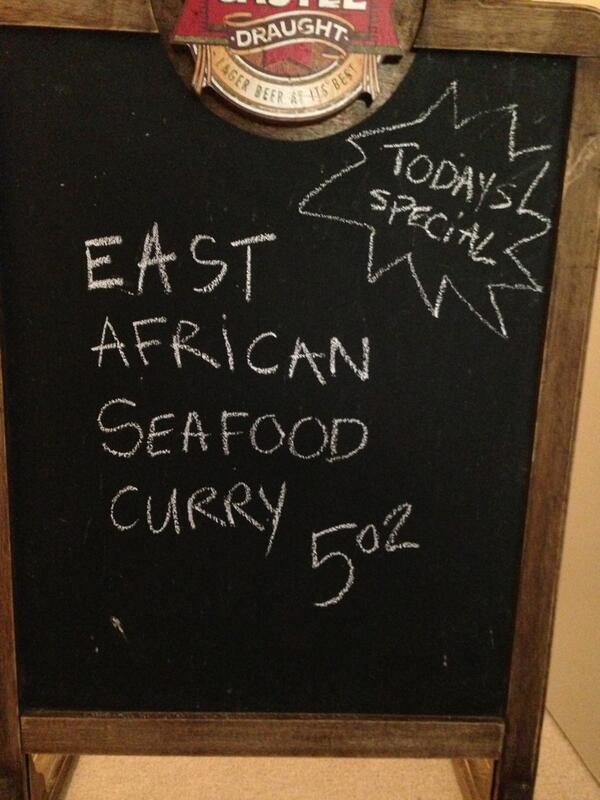 DRAUGHT
LAGER BEER AT ITS BEST
TODAYS
SPECIAL
EAST
AFRICAN
SEAFOOD
CURRY
502